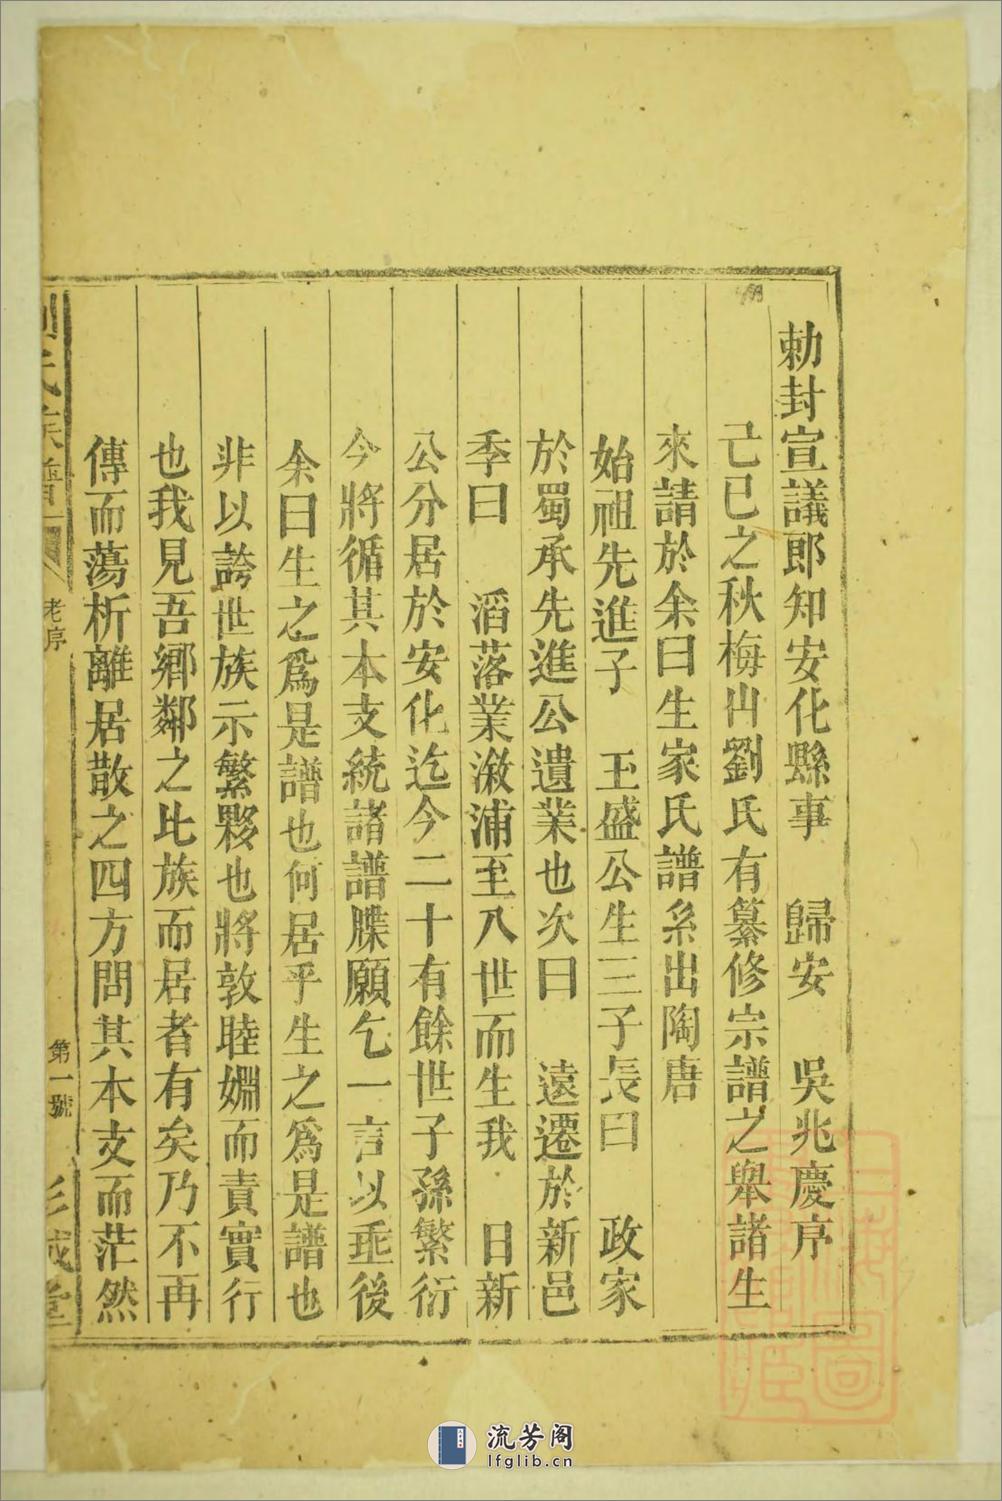 勅封宣議郎知安化縣事 歸安 吳兆慶序
己巳之秋梅山劉氏有纂修宗譜之舉諸生
來請於余曰生家氏譜系出陶唐
始祖先進子 玉盛公生三子長曰 政家
於蜀承先進公遺業也次曰 遠遷於新邑
季曰 滔落業漵浦至八世而生我 日新
公分居於安化迄今二十有餘世子孫繁衍
今將循其本支統諸譜牒願乞一言以垂後
余曰生之為是譜也何居乎生之為是譜也
非以誇世族示繁夥也將敦睦婣而責實行
也我見吾鄉鄰之比族而居者有矣乃不再
傳而蕩析離居散之四方問其本支而茫然
氏族譜 老序 第一號 彭城堂
流芳阁
lfglib.cn